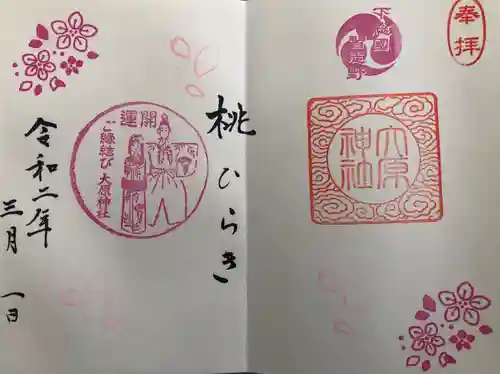 奉拝
下総國
大原
神社
桃ひらき
開運
ご縁結び 大原神社
令和二年
三月 一日